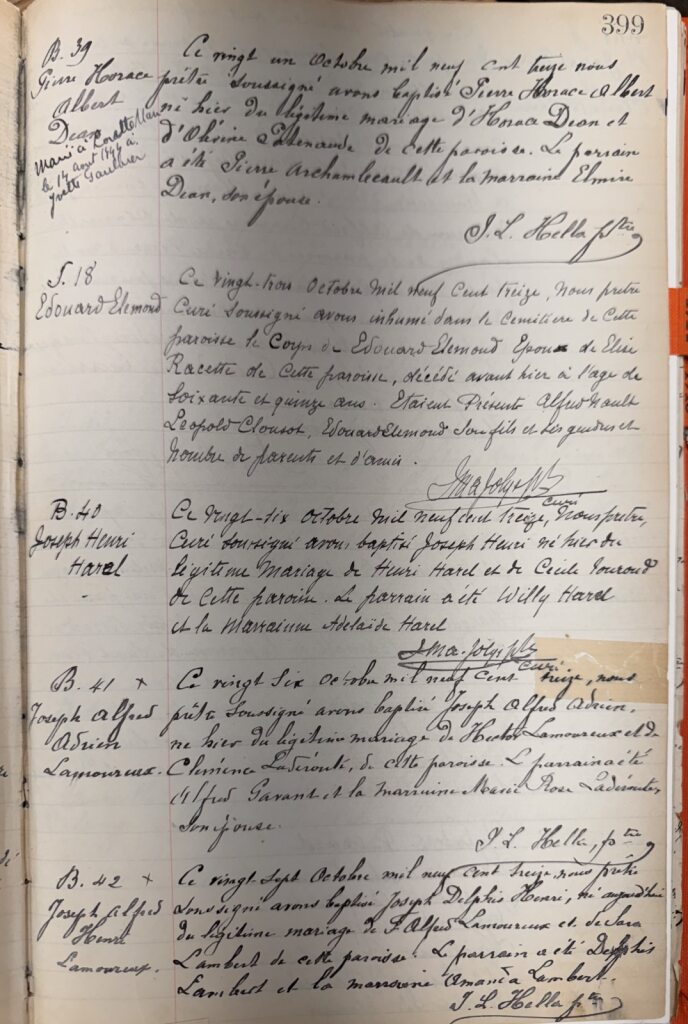 399
B. 39
Pierre Horace
Albert
Dean
Marié à Lorette Man
le 14 aout 1944 à
Yvette Gauthier
Ce vingt un Octobre mil neuf cent treize nous
prêtre soussigné avons baptisé Pierre Horace Albert
né hier du légitime mariage d'Horace Dean et
d'Olivine Patenaude de cette paroisse. Le parrain
a été Pierre Archambeault et la marraine Elmire
Dean, son épouse.
J. L. Hella ptre
S. 18
Edouard Elemond
Ce vingt-trois Octobre Mil neuf Cent treize, Nous pretre
Curé Soussigné avons inhumé dans le Cemitière de Cette
paroisse le Corps de Edouard Elemond Epoux de Elise
Racette de Cette paroisse, décédé avant hier à l'age de
Soixante et quinze ans. Etaient Présents Alfred Nault
Leopold Clousot, Edouard Elemond Son fils et Ses gendres et
Nombre de parents et d'amis.
curé
B. 40
Joseph Henri
Harel
Ce Vingt-six Octobre Mil neuf cent treize, Nous pretre,
Curé Soussigné avons baptisé Joseph Henri né hier du
légitime Mariage de Henri Harel et de Cecile
de Cette paroisse. Le parrain a été Willy Harel
et la Marrainne Adelaïde Harel
curé
B. 41 x
Joseph Alfred
Adrien
Lamoureux.
Ce vingt Six Octobre mil neuf Cent treize, nous
prêtre Soussigné avons baptisé Joseph Alfred Adrien,
né hier du légitime mariage de Hector Lamoureux et de
Clemence Laderoute, de cette paroisse. L parrain a été
Alfred Gavant et la marraine Marie Rose Laderoute,
Son épouse.
J. L. Hella, ptre
B. 42 x
Joseph Alfred
Henri
Lamoureux.
Ce vingt Sept Octobre mil neuf Cent treize, nous prêtre
Soussigné avons baptisé Joseph Delphis Henri, né aujourd'hui
du légitime mariage de J. Alfred Lamoureux et de Sara
Lambert de cette paroisse. Le parrain a été Delphis
Lambert et la marraine Amanda Lambert.
J. L. Hella ptre